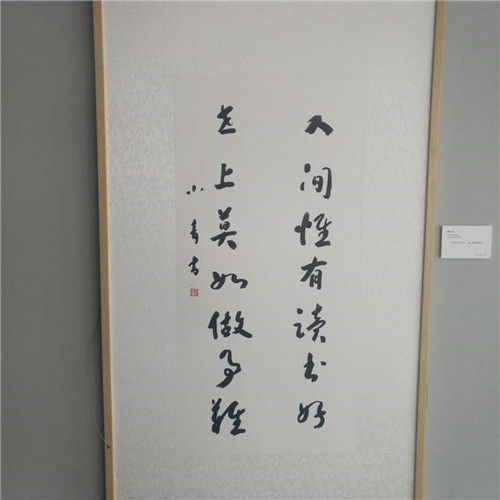 人间惟有读书好
世上莫如做事难
小奇书